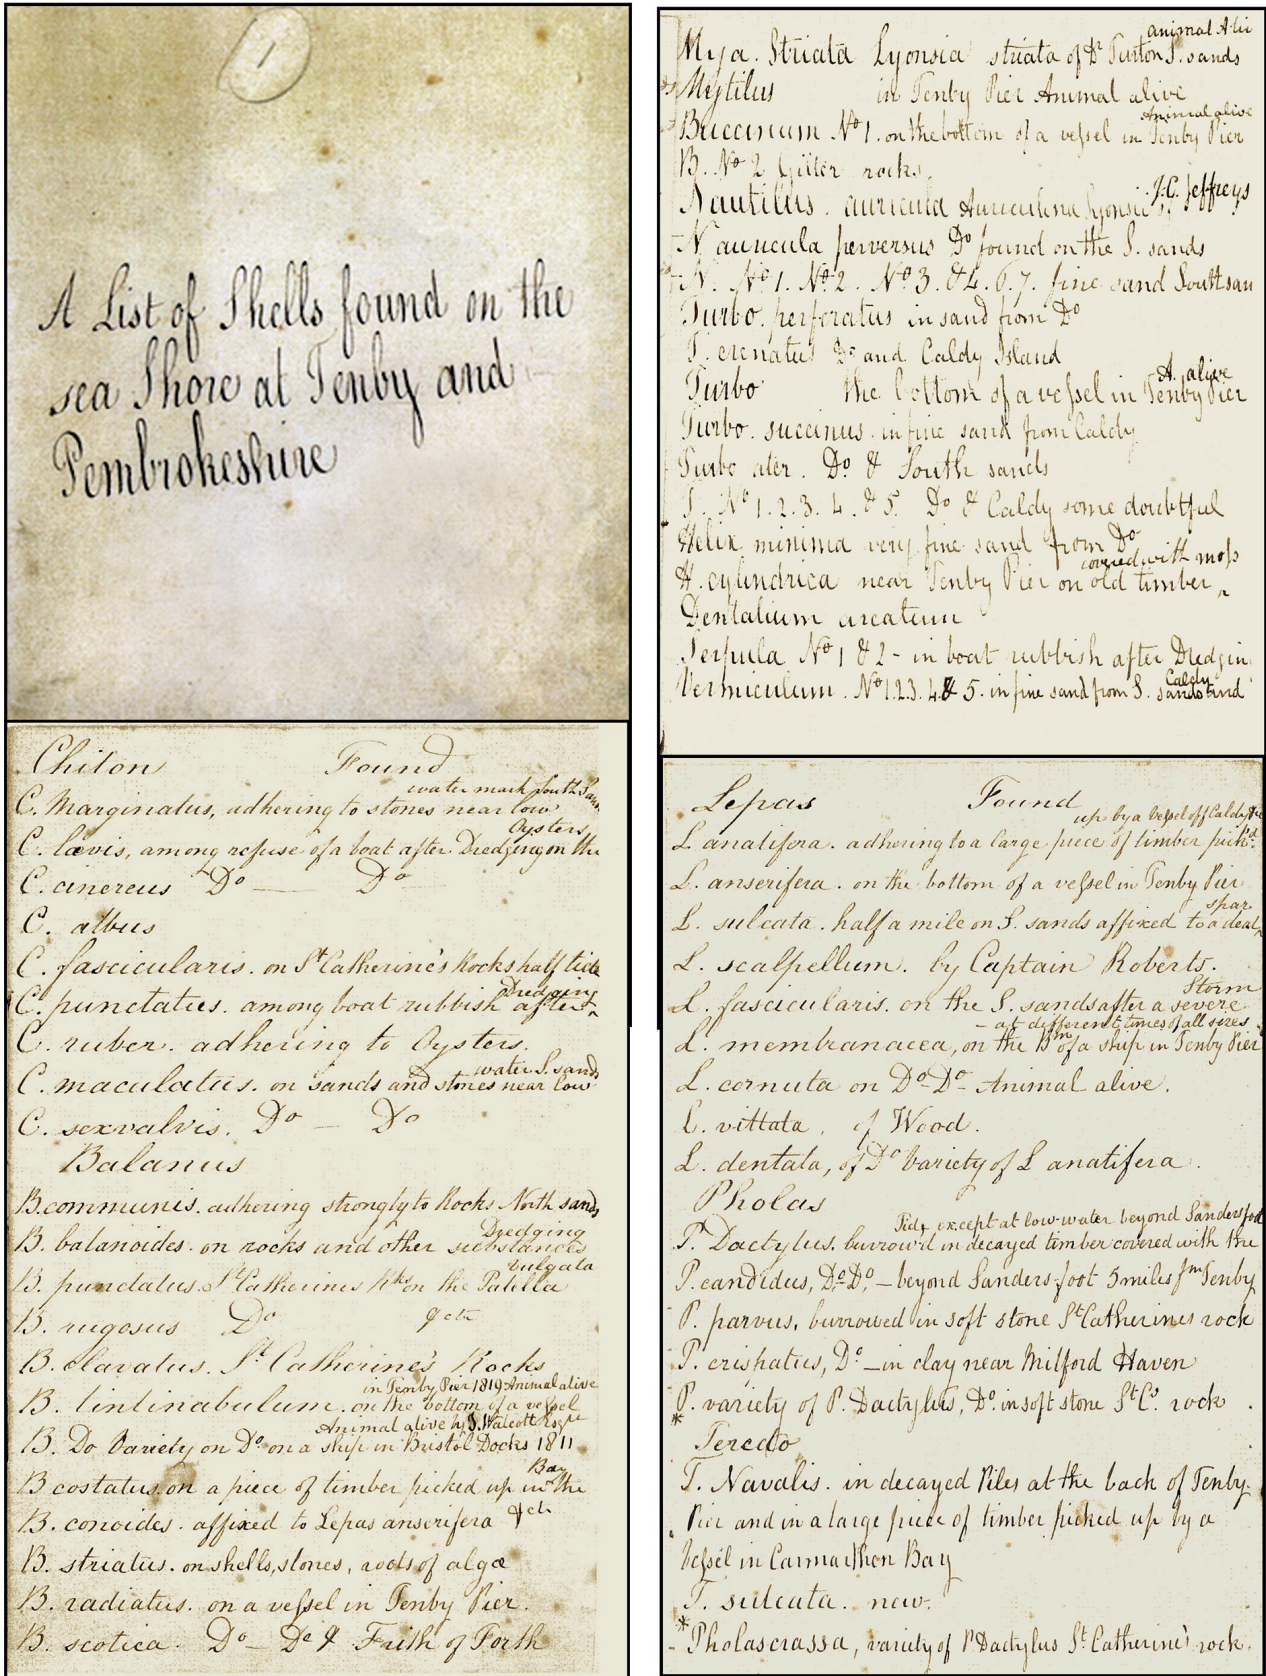 1
A List of Shells found on the
sea Shore at Tenby and
Pembrokeshire
Chiton Found
water mark South San
C. Marginatus, adhering to stones near low
Oysters
C. lævis, among refuse of a boat after Dredging on the
C. cinereus Do — Do
C. albus
C. fascicularis. on St Catherine's Rocks half tide
Dredging
C. punctatus. among boat rubbish after
C. ruber. adhering to Oysters.
water S. sands
C. maculatus. on sands and stones near low
C. sexvalvis. Do — Do
Balanus
B. communis. adhering strongly to Rocks North sands
Dredging
B. balanoides. on rocks and other substances
vulgata
B. punctatus. St Catherines Rks on the Patella
B. rugosus Do &ctr
B. clavatus. St Catherine's Rocks
in Tenby Pier 1819 Animal alive
B. tintinabulum. on the bottom of a vessel
Animal alive by J. Walcott Esqre
B. Do Variety on Do on a ship in Bristol Docks 1811
Bay
B costatus. on a piece of timber picked up in the
B. conoides. affixed to Lepas anserifera &ctr
B. striatus. on shells, stones, roots of algæ
B. radiatus. on a vessel in Tenby Pier.
B. scotica. Do — Do & Frith of Forth
animal Aliv
Mya. Striata Lyonsia striata of Dr Turton S. sands
Mytilus in Tenby Pier Animal alive
Animal alive
Buccinum No 1. on the bottom of a vessel in Tenby Pier
B. No 2 Gilter rocks.
J.C. Jeffreys
Nautilus. auricula Auriculina
N auricula perversus Do found on the S. sands
N. No 1. No 2. No 3. &4. 6. 7. fine sand South san
Turbo. perforatus in sand from Do
T. crenatus Do and Caldy Island
A. alive
Turbo the bottom of a vessel in Tenby Pier
Turbo. succinus. in fine sand from Caldy
Turbo ater. Do & South sands
T. No 1. 2. 3. 4. & 5. Do & Caldy some doubtful
Helix minima very fine sand from Do
covered with moss
H. cylindrica near Tenby Pier on old timber
Dentalium arcatum
Serpula No 1 & 2 - in boat rubbish after Dredgin
Caldy
Vermiculum. No 1.2.3. 4. & 5. in fine sand from S. sands and
Lepas Found
up by a Vessel off Caldy
L anatifera. adhering to a large piece of timber pickd
L. anserifera. on the bottom of a vessel in Tenby Pier
spar
L. sulcata. half a mile on S. sands affixed to a deal
L. scalpellum. by Captain Roberts.
Storm
L. fascicularis. on the S. sands after a severe
- at different times of all sizes
L. membranacea, on the Bm of a ship in Tenby Pier
L. cornuta on Do Do Animal alive.
L. vittata, of Wood.
L. dentata, of Do Variety of L anatifera.
Pholas
Tide except at low-water beyond Sandersfoot
P. Dactylus. burrow'd in decayed timber covered with the
P. candidus, Do Do, — beyond Sanders foot 5 miles fm Tenby
P. parvus, burrowed in soft stone St Catherines rock
P. crishatus, Do — in clay near Milford Haven
P. variety of P. Dactylus, Do. in soft stone St Cs. rock.
*
Teredo
T. Navalis. in decayed Piles at the back of Tenby
Pier and in a large piece of timber picked up by a
Vessel in Carmarthen Bay
T. sulcata. new.
*
- Pholas crassa, variety of P Dactylus St Catherine's rock.